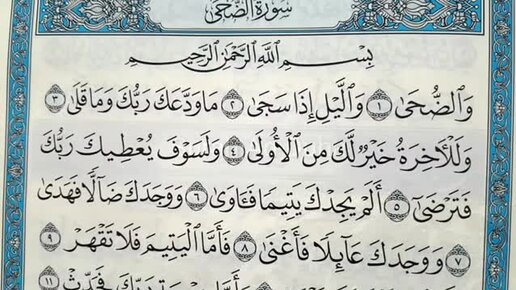 سُورَةُ الضُّحَىٰ
بِسْمِ ٱللَّهِ ٱلرَّحْمَٰنِ ٱلرَّحِيمِ
وَٱلضُّحَىٰ ١ وَٱلَّيْلِ إِذَا سَجَىٰ ٢ مَا وَدَّعَكَ رَبُّكَ وَمَا قَلَىٰ ٣
وَلَلْأٓخِرَةُ خَيْرٌ لَّكَ مِنَ ٱلْأُولَىٰ ٤ وَلَسَوْفَ يُعْطِيكَ رَبُّكَ
فَتَرْضَىٰٓ ٥ أَلَمْ يَجِدْكَ يَتِيمًا فَـَٔاوَىٰ ٦ وَوَجَدَكَ ضَآلًّا فَهَدَىٰ
٧ وَوَجَدَكَ عَآئِلًا فَأَغْنَىٰ ٨ فَأَمَّا ٱلْيَتِيمَ فَلَا تَقْهَرْ ٩
رَبِّكَ فَحَدِّثْ ١١